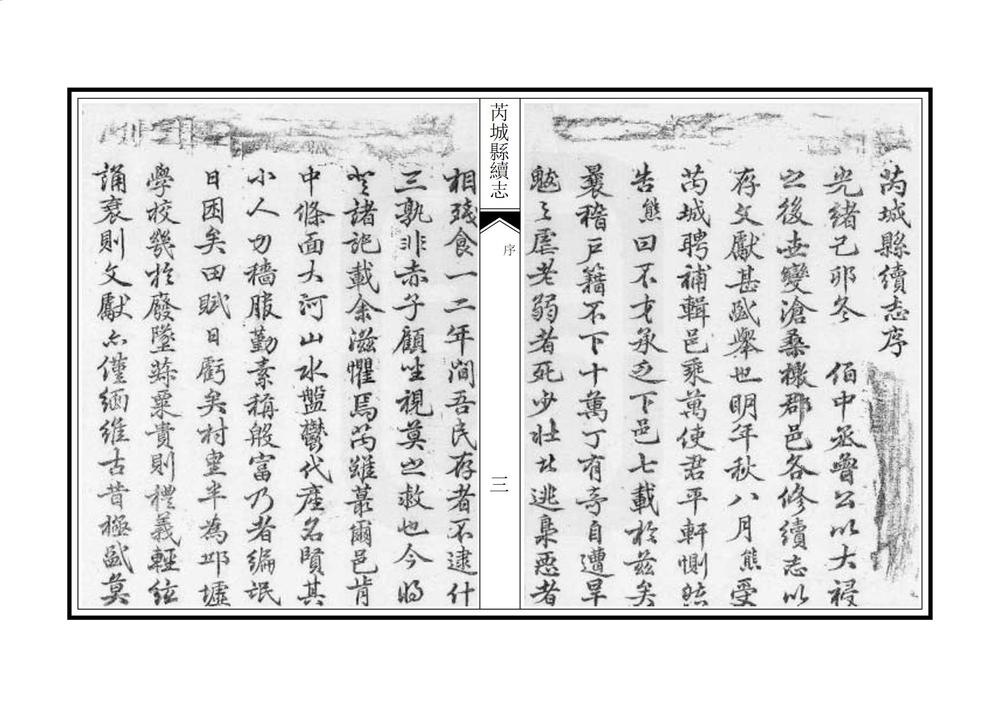 芮城縣續志序
光緒己卯冬　伯中丞曾公以大祲
之後世變滄桑檄郡邑各修續志以
存文獻甚盛舉也明年秋八月熊受
芮城聘補輯邑乘萬使君平軒惻然
告熊曰不才承乏下邑七載於茲矣
曩稽戶籍不下十萬丁有奇自遭旱
魃之虐老弱者死少壯北逃梟惡者
芮城縣續志
序
三
相殘食一二年間吾民存者不逮什
三孰非赤子顧坐視莫之救也今將
登諸記載余滋懼焉芮雖蕞爾邑肯
中條面大河山水盤鬱代產名賢其
小人力穡服勤素稱殷富乃者編氓
日困矣田賦日虧矣村堡半為邱墟
學校幾於廢墜蓀粟貴則禮義輕絃
誦衰則文獻亦僅緬維古昔極盛莫